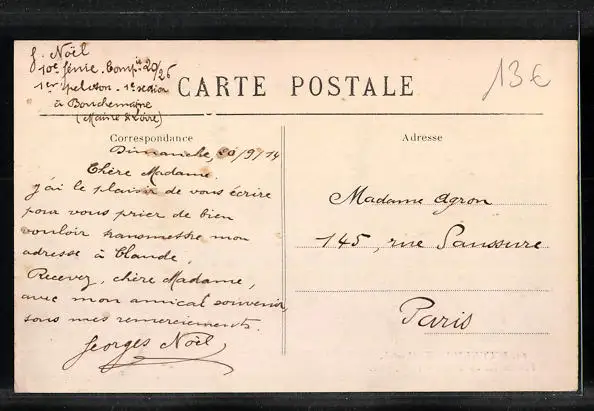 G. Noël
10e Génie. Compie 20/26
1er peloton. 1e section
à Bouchemaine
(Maine & Loire)
13€
CARTE POSTALE
Correspondance
Adresse
Dimanche, 20/9/14
Chère Madame.
J'ai le plaisir de vous écrire
pour vous prier de bien
vouloir transmettre mon
adresse à Claude,
Recevez, chère Madame,
avec mon amical souvenir,
tous mes remerciements.
Georges Noël
Madame Agron
145, rue Saussure
Paris